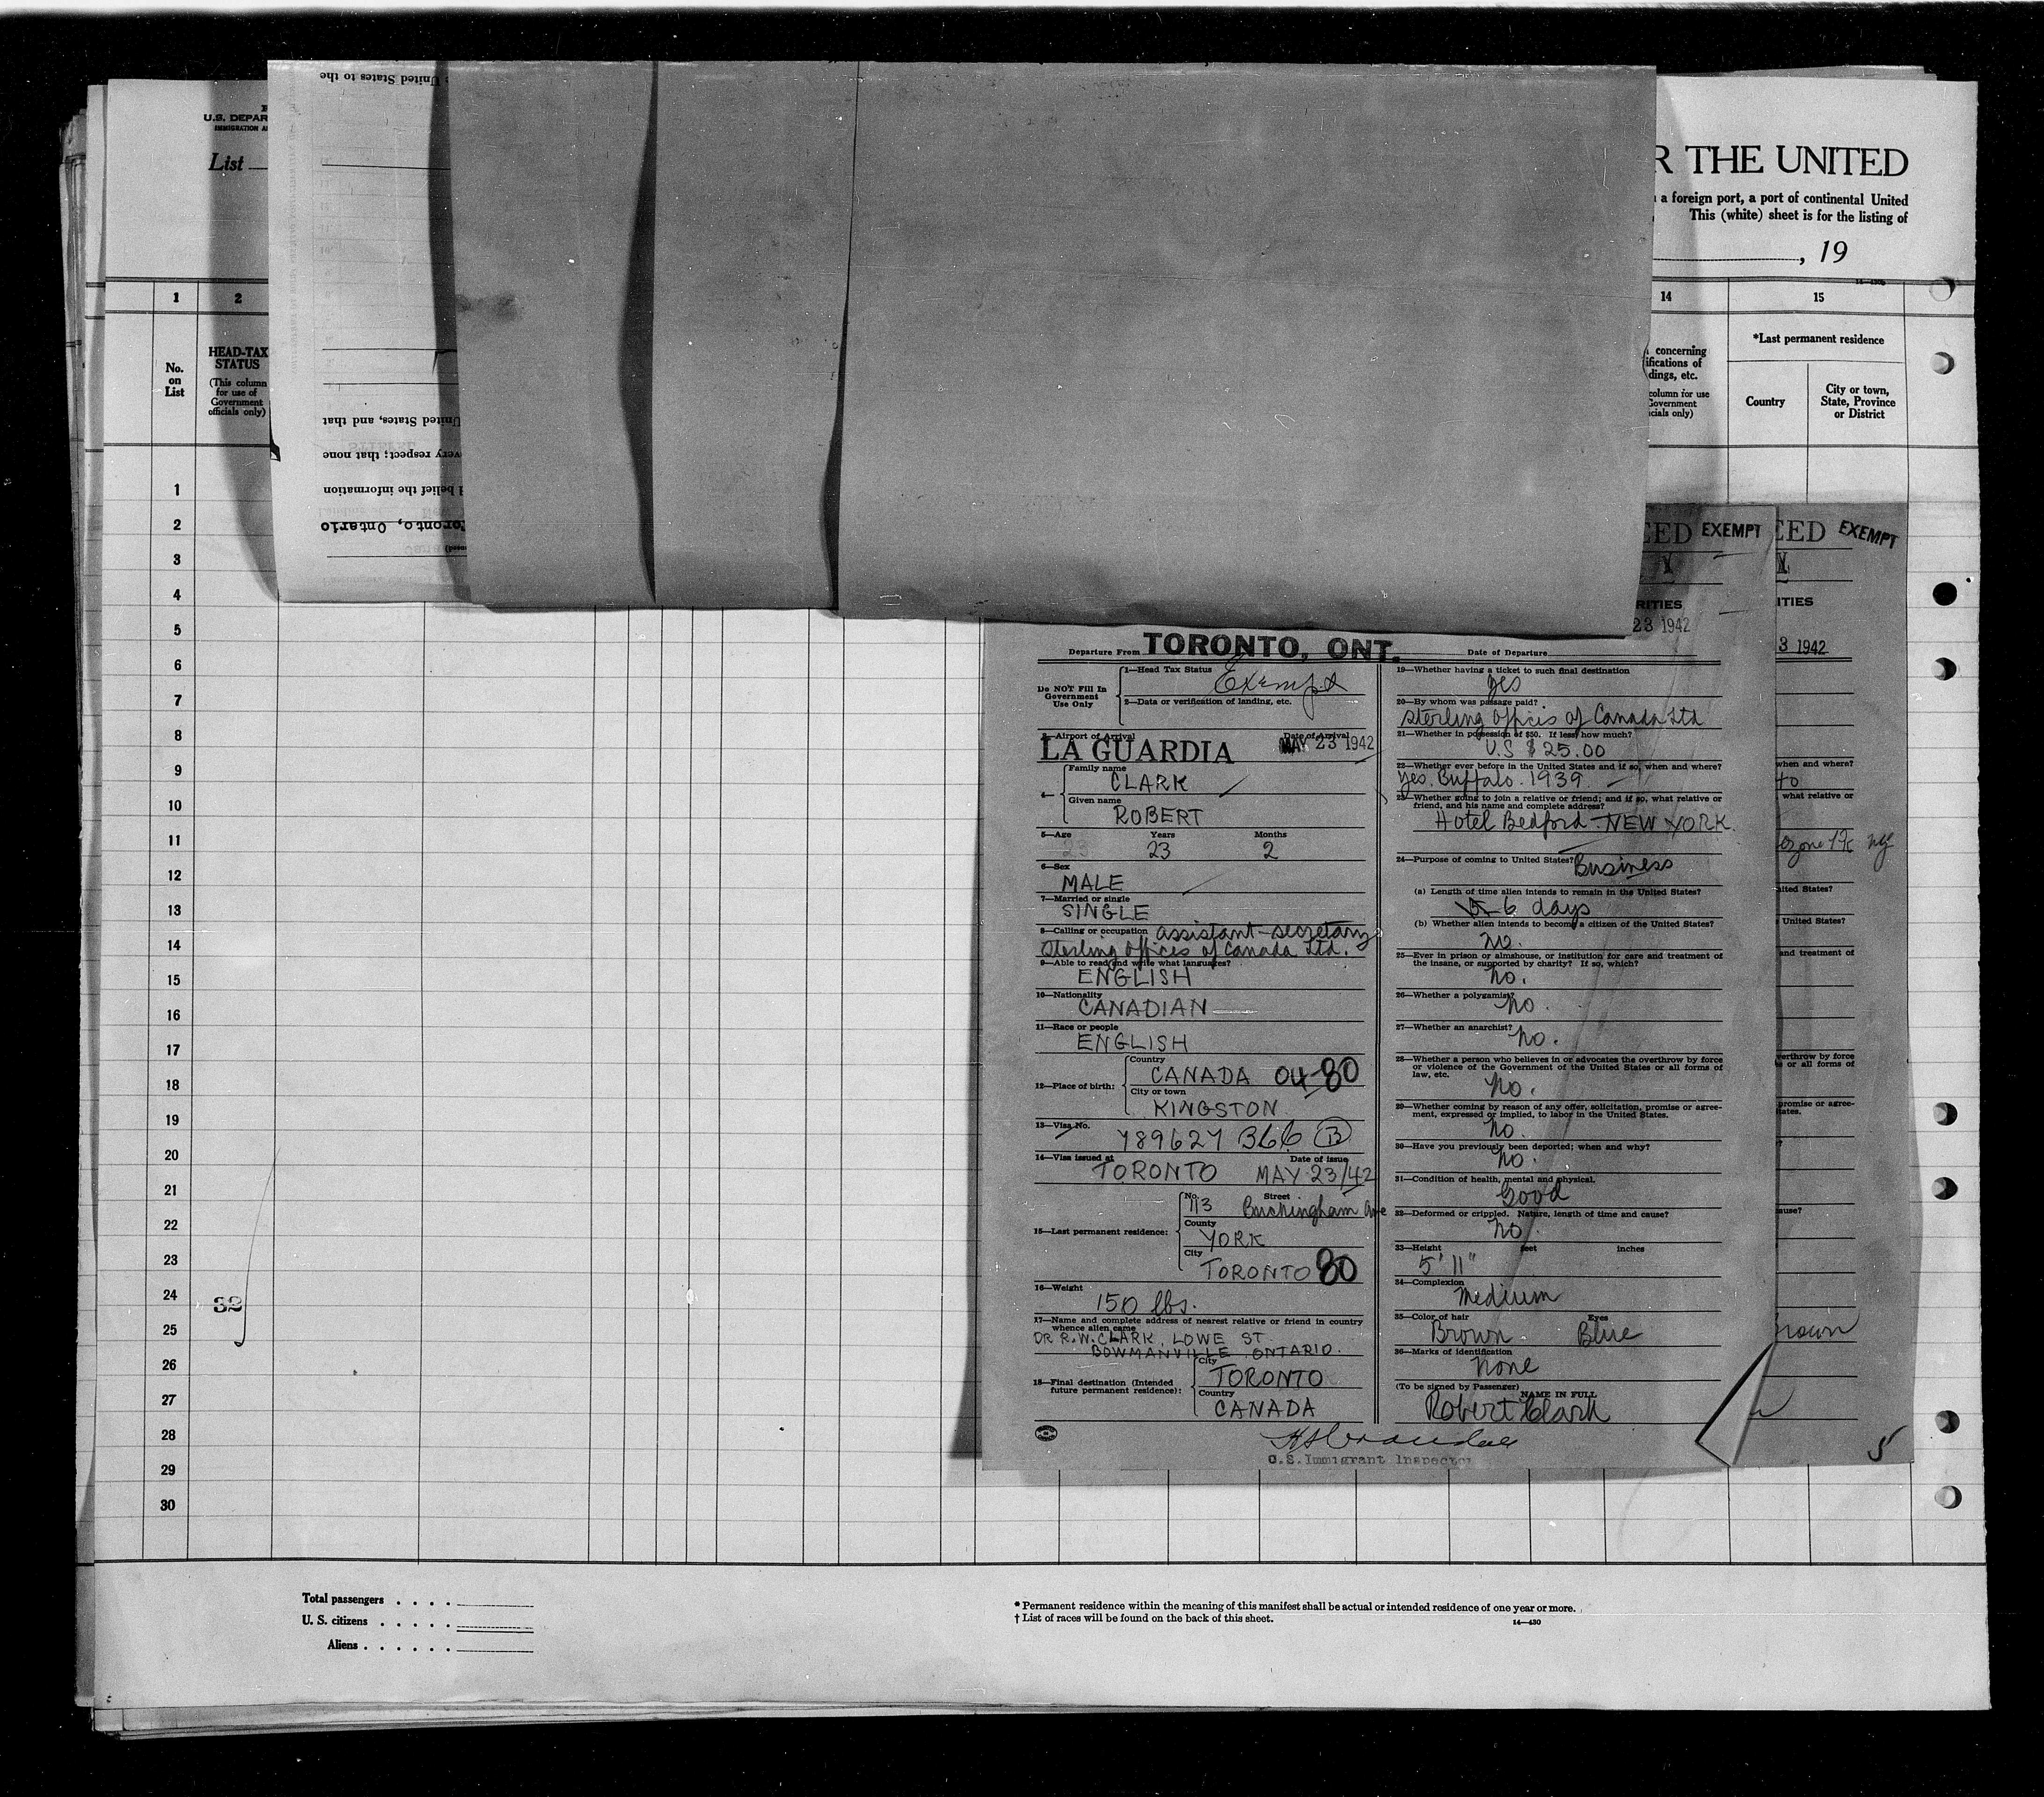 United States to the
U.S. DEPAR
IMMIGRATION A
List
R THE UNITED
a foreign port, a port of continental United
This (white) sheet is for the listing of
, 19
1 2 14 15
No. on List
HEAD-TAX STATUS
(This column for use of Government officials only)
concerning
ifications of
dings, etc.
column for use
Government
icials only)
*Last permanent residence
Country
City or town, State, Province or District
United States, and that
very respect; that none
belief the information
Toronto, Ontario
EED EXEMPT
EED EXEMPT
RITIES
ITIES
23 1942
3 1942
Departure From TORONTO, ONT. Date of Departure
Do NOT Fill In Government Use Only
1—Head Tax Status Exempt
2—Data or verification of landing, etc.
3—Airport of Arrival Date of Arrival
LA GUARDIA MAY 23 1942
4— Family name
CLARK
Given name
ROBERT
5—Age Years Months
23 23 2
6—Sex
MALE
7—Married or single
SINGLE
8—Calling or occupation assistant-secretary
Sterling Offices of Canada Ltd.
9—Able to read and write what languages?
ENGLISH
10—Nationality
CANADIAN
11—Race or people
ENGLISH
12—Place of birth:
Country
CANADA 04-80
City or town
KINGSTON
13—Visa No.
789627 B66 B
14—Visa issued at Date of issue
TORONTO MAY 23/42
15—Last permanent residence:
No. Street
113 Buckingham Ave
County
YORK
City
TORONTO 80
16—Weight
150 lbs.
17—Name and complete address of nearest relative or friend in country
whence alien came
DR R.W. CLARK, LOWE ST.
BOWMANVILLE ONTARIO.
18—Final destination (Intended
future permanent residence):
City
TORONTO
Country
CANADA
19—Whether having a ticket to such final destination
yes
20—By whom was passage paid?
Sterling Offices of Canada Ltd
21—Whether in possession of $50. If less, how much?
U.S $25.00
22—Whether ever before in the United States and if so, when and where?
Yes. Buffalo. 1939
23—Whether going to join a relative or friend; and if so, what relative or
friend, and his name and complete address?
Hotel Bedford. NEW YORK.
24—Purpose of coming to United States? Business
(a) Length of time alien intends to remain in the United States?
6 days
(b) Whether alien intends to become a citizen of the United States?
no.
25—Ever in prison or almshouse, or institution for care and treatment of
the insane, or supported by charity? If so, which?
no.
26—Whether a polygamist?
no.
27—Whether an anarchist?
no.
28—Whether a person who believes in or advocates the overthrow by force
or violence of the Government of the United States or all forms of
law, etc.
no.
29—Whether coming by reason of any offer, solicitation, promise or agree-
ment, expressed or implied, to labor in the United States.
no.
30—Have you previously been deported; when and why?
no.
31—Condition of health, mental and physical.
Good
32—Deformed or crippled. Nature, length of time and cause?
no.
33—Height feet inches
5' 11"
34—Complexion
Medium
35—Color of hair Eyes
Brown Blue
36—Marks of identification
None
(To be signed by Passenger) NAME IN FULL
Robert Clark
U.S. Immigrant Inspector
when and where?
40
what relative or
ny
United States?
United States?
and treatment of
verthrow by force
or all forms of
promise or agree-
tates.
ause?
Brown
5
1
2
3
4
5
6
7
8
9
10
11
12
13
14
15
16
17
18
19
20
21
22
23
24
25
26
27
28
29
30
32
Total passengers . . . .
U. S. citizens . . . . .
Aliens . . . . . .
* Permanent residence within the meaning of this manifest shall be actual or intended residence of one year or more.
† List of races will be found on the back of this sheet.
14—430